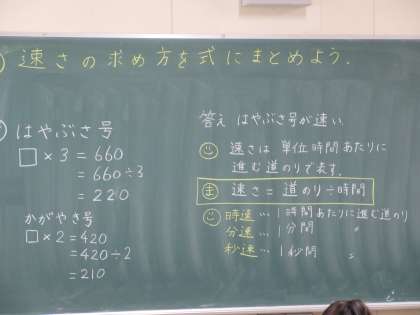 速さの求め方を式にまとめよう.
はやぶさ号
□×3=660
=660÷3
=220
かがやき号
□×2=420
=420÷2
=210
答え はやぶさ号が速い
速さは 単位時間あたりに
進む道のりで表す.
ま 速さ=道のり÷時間
時速…1時間あたりに進む道のり
分速…1分間 〃
秒速…1秒間 〃